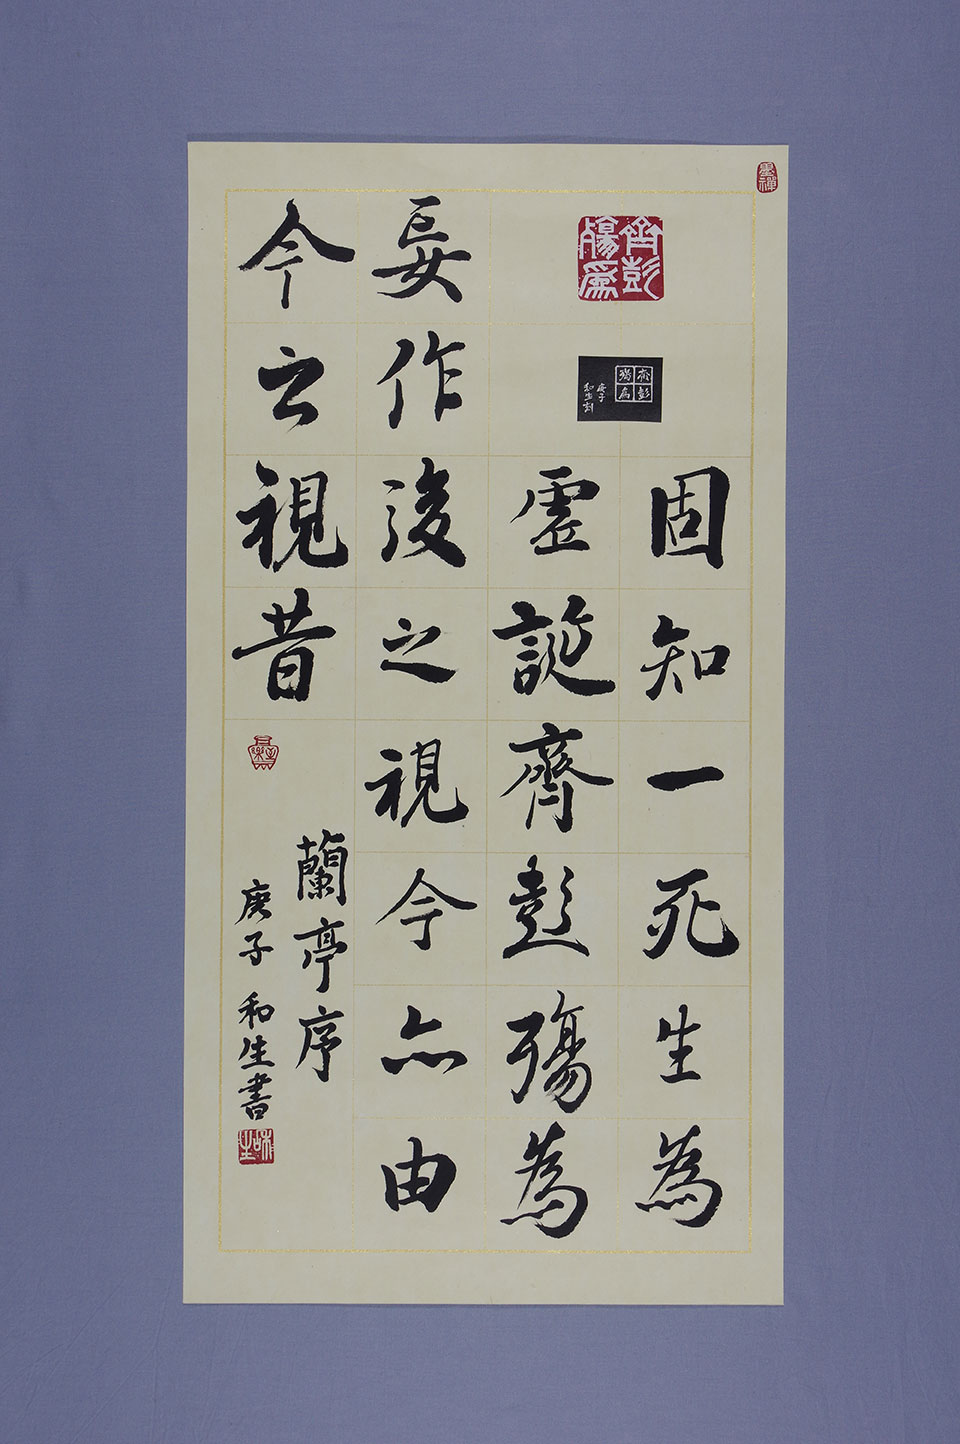 墨禪
齊彭殤為
齊彭殤為
庚子
和生刻
固知一死生為
虛誕齊彭殤為
妄作後之視今亦由
今之視昔
蘭亭序
庚子 和生書
和生